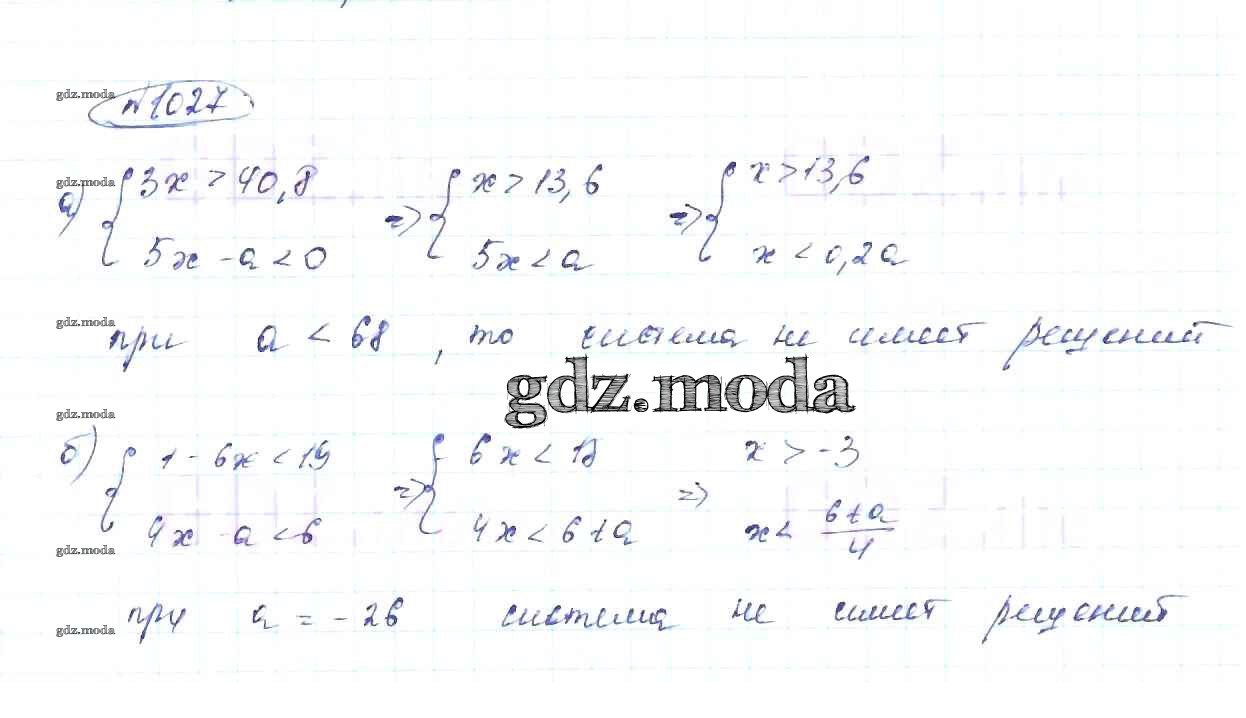 gdz.moda
№1027
gdz.moda
а) { 3x > 40,8 => { x > 13,6 => { x > 13,6
5x - a < 0 5x < a x < 0,2a
gdz.moda
при a < 68, то система не имеет решений
gdz.moda
gdz.moda
б) { 1 - 6x < 19 => { 6x < 18 => x > -3
4x - a < 6 4x < 6 + a x < (6 + a)/4
gdz.moda
при a = -26 система не имеет решений
gdz.moda